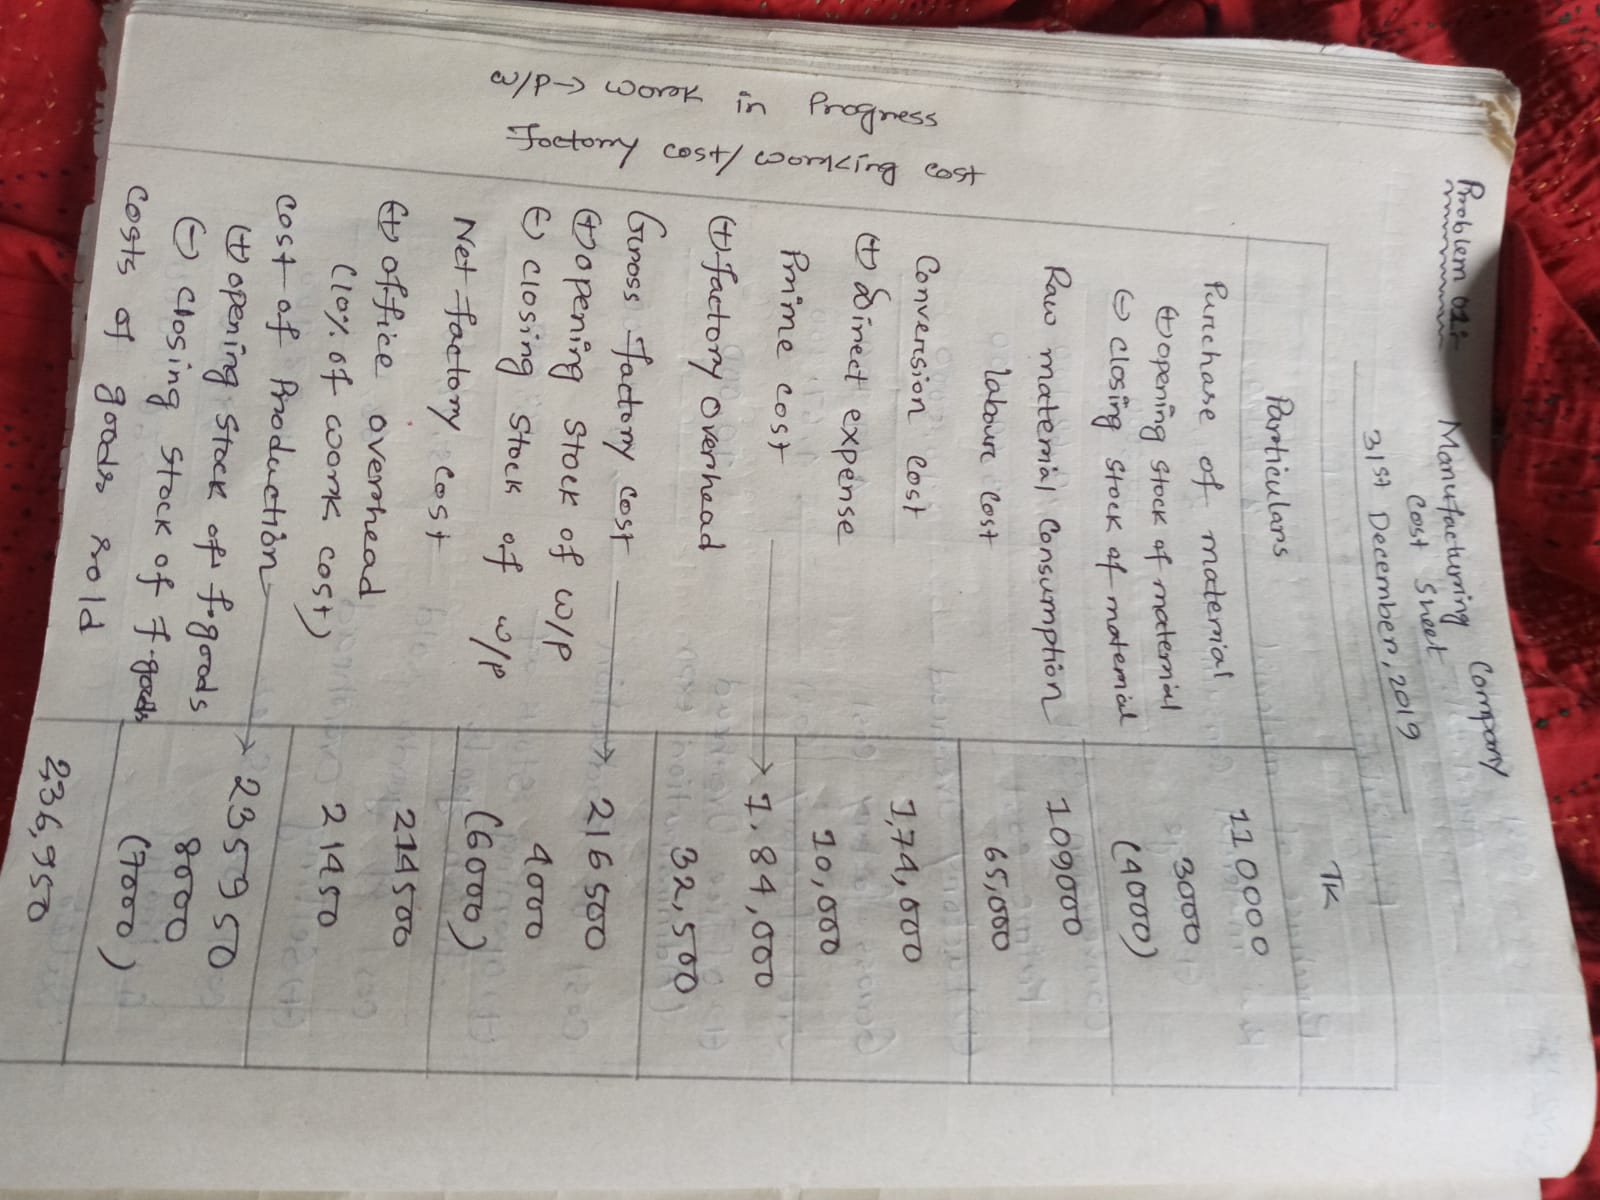 Problem 01:- Manufacturing Company
Cost Sheet
31st December, 2019
Particulars TK
Purchase of material 110000
(+) opening stock of material 3000
(-) closing stock of material (4000)
Raw material Consumption 109000
labour cost 65,000
Conversion cost 1,74,000
(+) Direct expense 10,000
Prime cost → 1,84,000
(+) factory overhead 32,500
Gross factory cost → 216500
(+) opening stock of w/p 4000
(-) closing stock of w/p (6000)
Net factory cost 214500
(+) office overhead 21450
(10% of work cost)
cost of Production → 235950
(+) opening stock of f.goods 8000
(-) closing stock of f.goods (7000)
costs of goods sold 2,36,950
w/p → work in Progress
factory cost/working cost